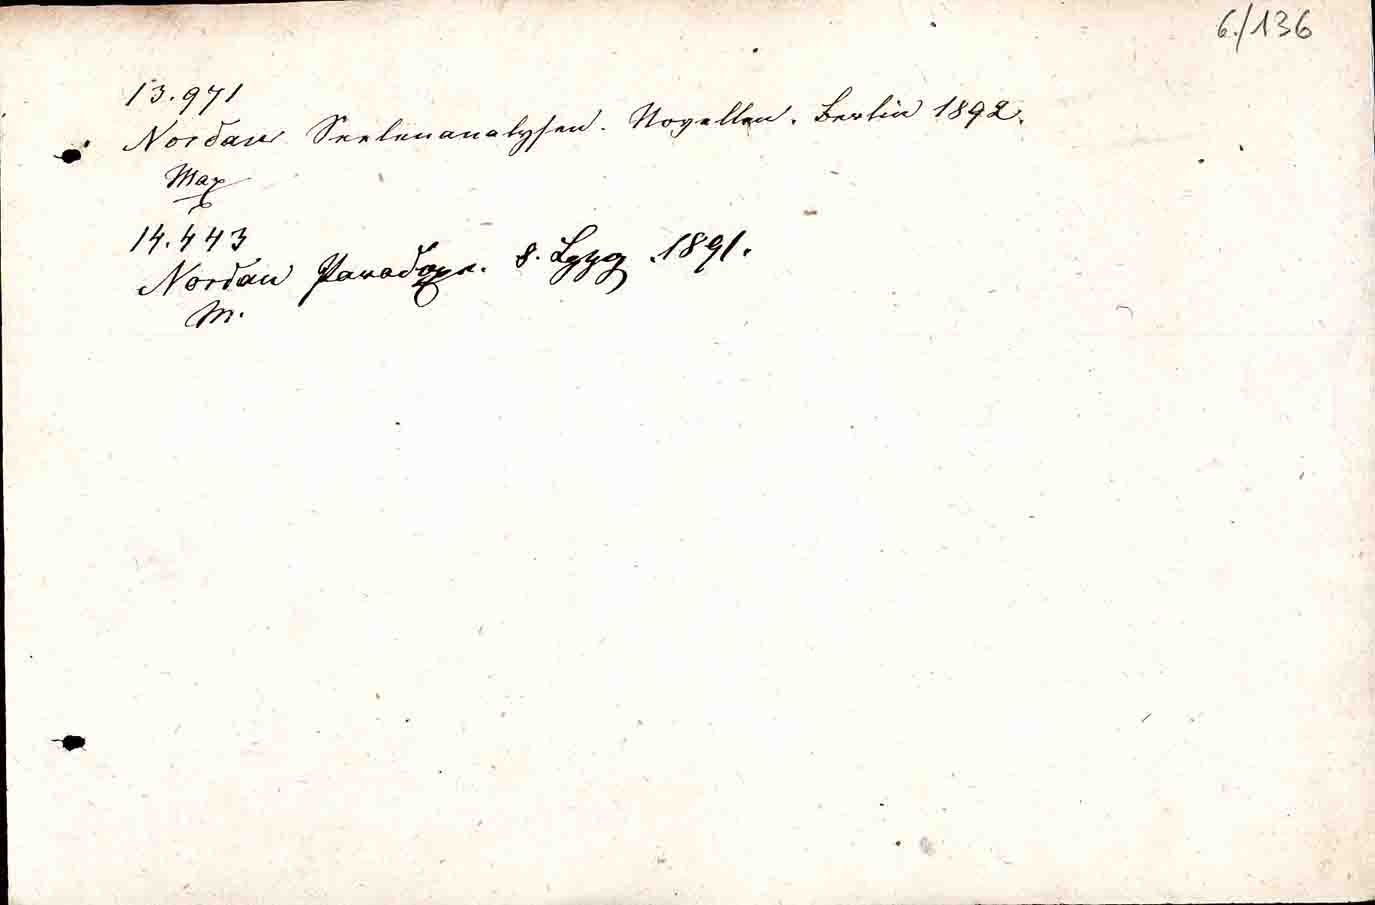 6./136
13.971
Nordau Seelenanalysen. Novellen. Berlin 1892.
Max
14.443
Nordau Paradoxe. 8. Lpzg. 1891.
M.